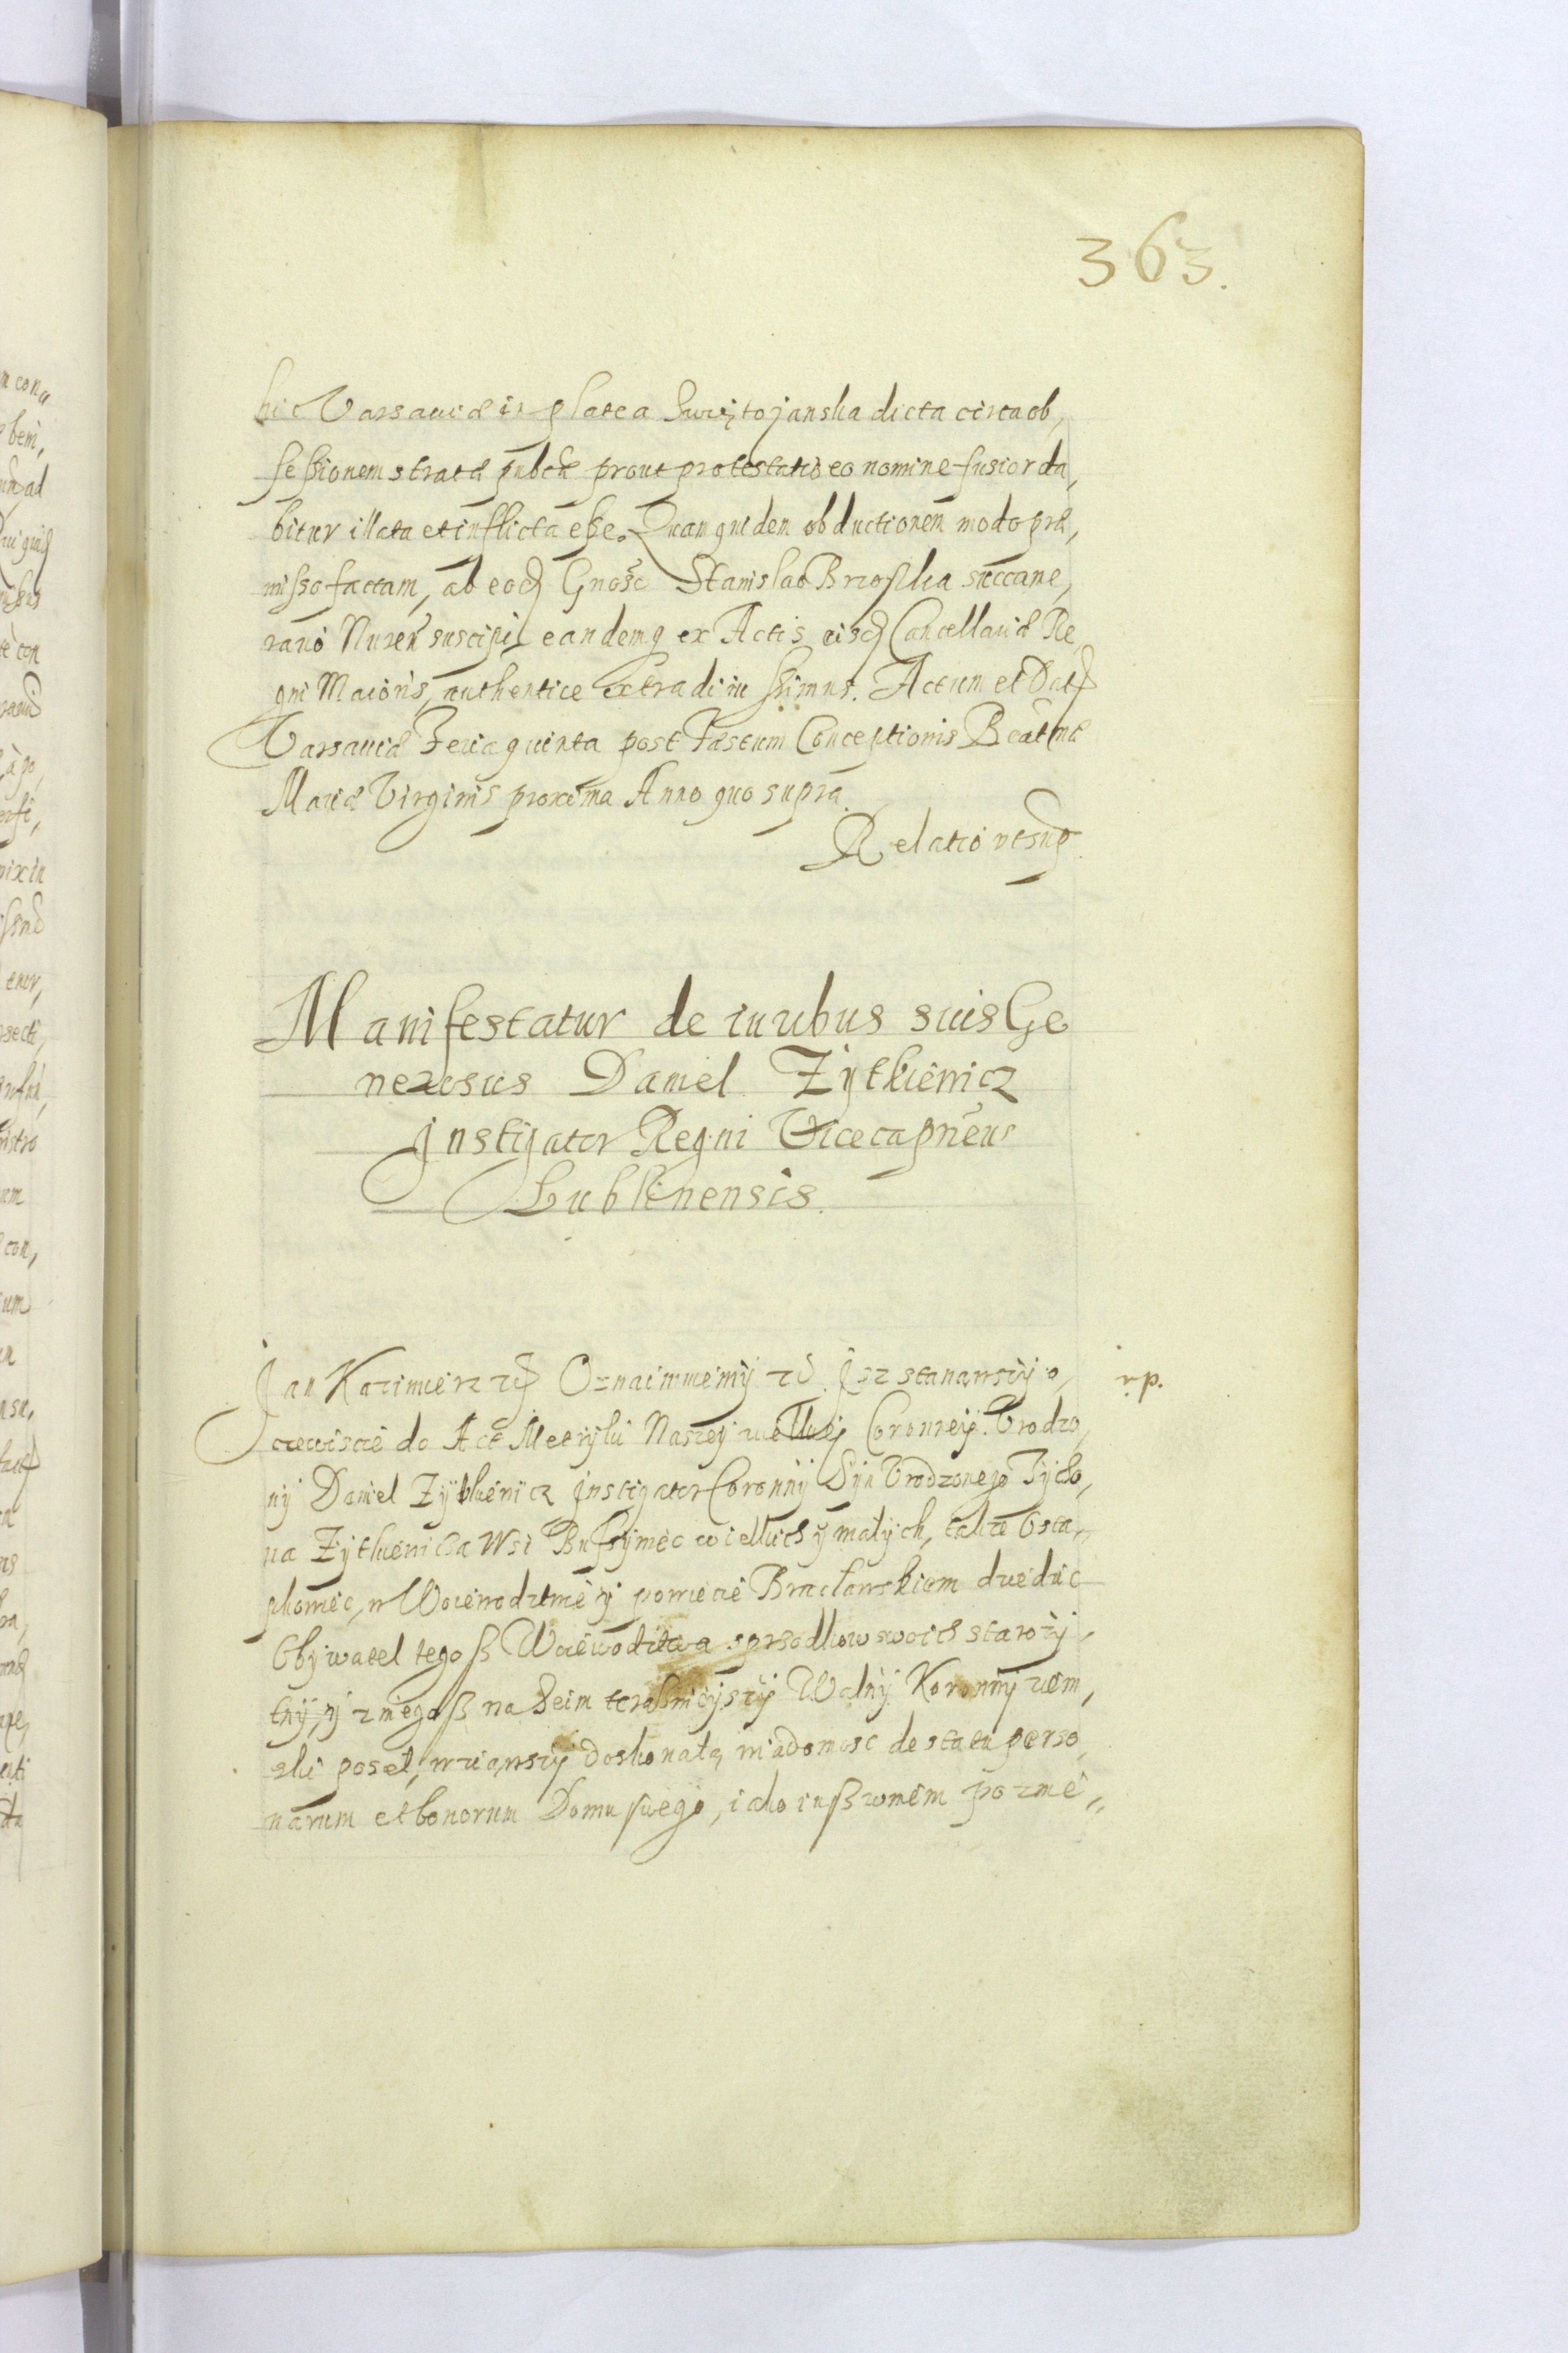 363.
hic Varsaviæ in platea Swiętojanska dicta circa ob,
sessionem stratæ publcæ prout protestatio eo nomine fusior da,
bitur illata et inflicta esse. Quam quidem obductionem modo præ,
misso factam, ab eod Gnoso Stanislao Brzoska succame,
rario Nuren suscipi eandemq ex Actis eisd Cancellariæ Re,
gni Maioris, authentice extradi iussimus. Actum et Dat
Varsaviæ Feria quinta post Fæstum Conceptionis Beatmæ
Mariæ Virginis proxima Anno quo supra.
Relatio ut sup
Manifestatur de iuribus suis Ge
nerosus Daniel Zytkiewicz
Instigator Regni Vicecapneus
Lublinensis.
Jan Kazimierz Oznaimuiemy Jsz stanąwszy o,
rp.
czewiscie do Act Metryki Naszey wielkiey Coronney. Urodzo,
ny Daniel Zytkiewicz Instigator Coronny Syn Urodzonego Tycho,
na Zytkiewicza Wsi wielkich y małych, także Osta,
w Woiewodztwie y powiecie Bracławskiem dziedzic
Obywatel tegoß Woiewodztwa s przodkow swoich staroży,
tny, y z niegoß na Seim teraßnieyszy Walny Koronny ziem,
ski poseł, wziąwszy doskonałą wiadomosc de statu perso,
narum et bonorum Domu swego, iako iuß w niem po zniе,,